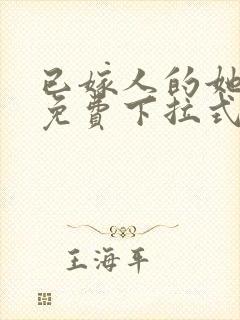 已嫁人的她
免费下拉式
王海平